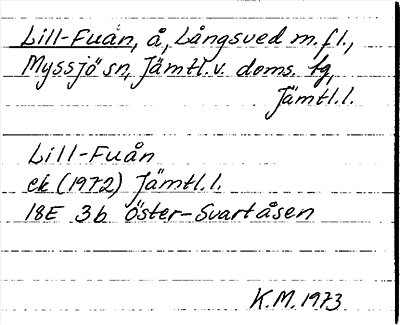 Lill-Fuån, å, Långsved m.fl.,
Myssjö sn, Jämtl. v. doms. tg,
Jämtl.l.
Lill-Fuån
ek (1972) Jämtl.l.
18E 3b Öster-Svartåsen
K.M. 1973